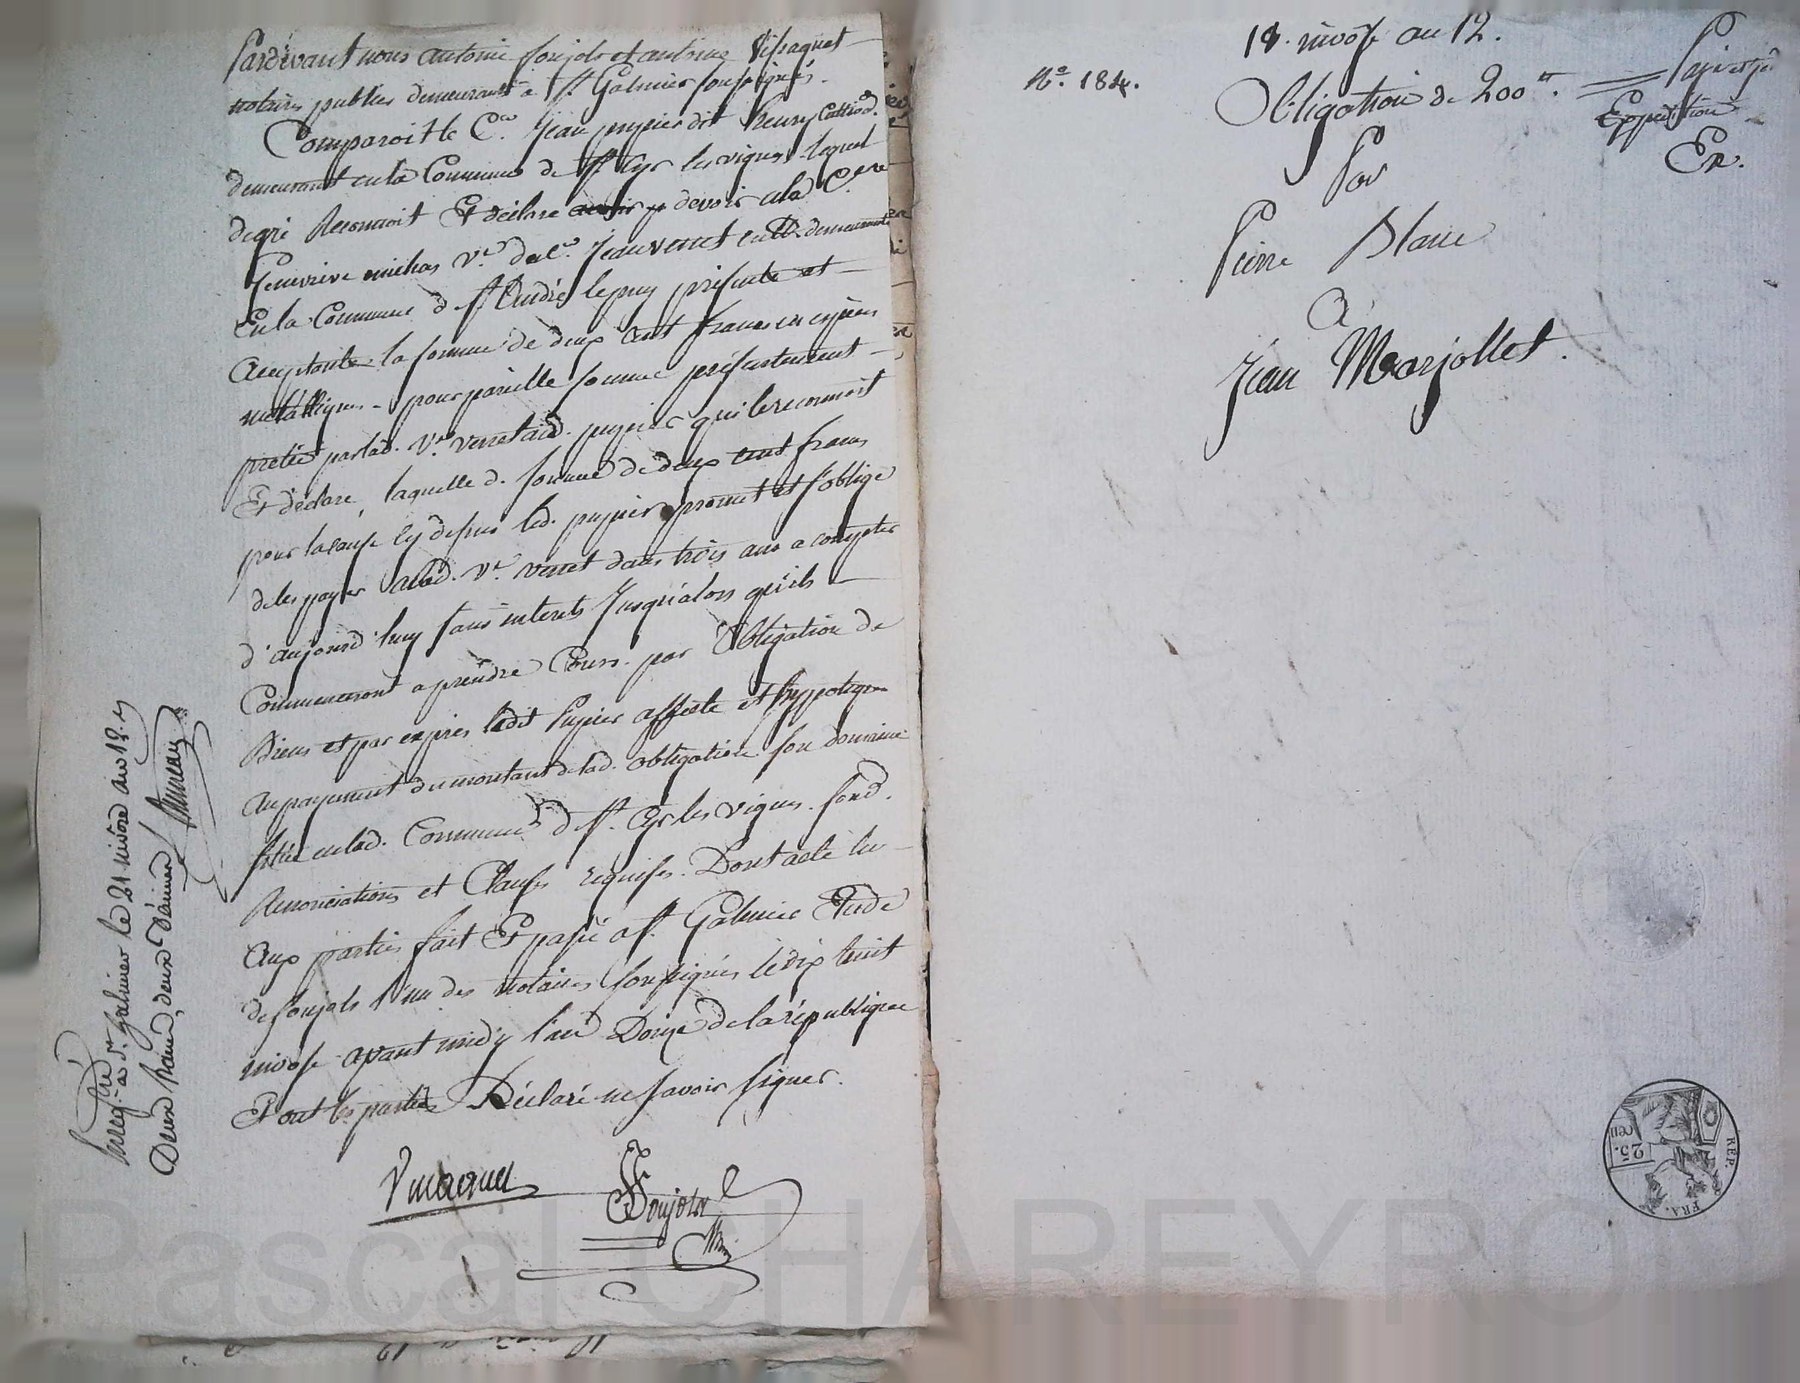 Pardevant nous antoine Poujols et antoine
notaires publics demeurants a St. Galmier soussignés.
Comparoit le Cen. Jean pupier dit henry
demeurant en la Commune de St. Cyr les vignes lequel
de gré Reconnoit Et déclare devoir a la
Genevieve michas Ve. de Jean verret demeurante
En la Commune de St. André le puy présente et
acceptante la somme de deux cent francs en espèces
metalliques - pour pareille somme présentement
pretée par lad. Ve. verret aud. pupier qui le reconnoit
Et déclare, laquelle d. somme de deux cent francs
pour la cause cy dessus led. pupier promet et s'oblige
de les payer a lad. Ve. verret dans trois ans a compter
d'aujourd'huy sans interets Jusqu'alors qu'ils
Commenceront a prendre Cours. par Obligation de
Biens et par exprès ledit Pupier affecte et hyppoteque
au payement du montant de lad. obligation son domaine
situé en lad. Commune de St. Cyr les vignes. fond.
Renonciations et Clauses requises. Dont acte lu
aux parties fait Et passé a St. Galmier Etude
de Poujols l'un des notaires soussignés le dix huit
nivose avant midy l'an Douze de la république
Et ont les parties Déclaré ne savoir signer.
Poujols
Enreg.tré a St. Galmier le 21 nivose an 12
Deux francs, deux Décimes
18. nivose an 12.
No. 184.
Obligation de 200tt.
Expedition
Ex.
Par
Pierre Blanc
a
Jean Marjollet.
REP. FRA.
25.
cen
Pascal CHAREYRON